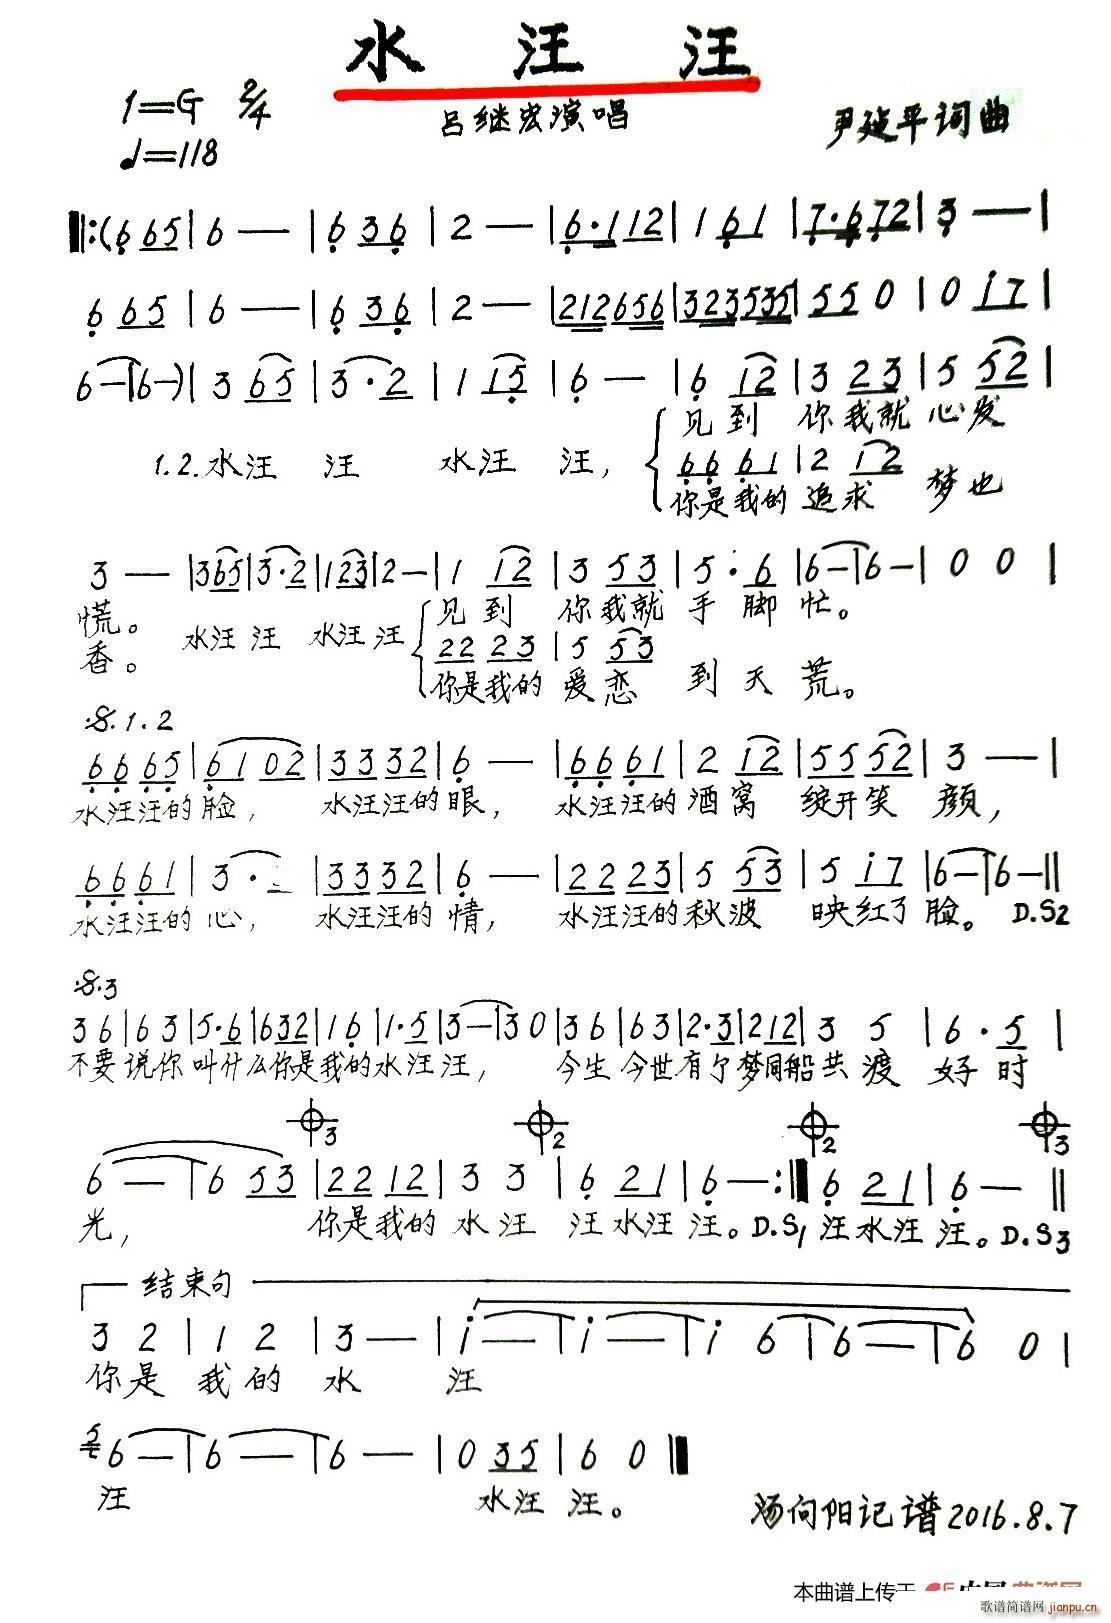 水汪汪
1=G 2/4
♩=118
吕继宏演唱
尹建平词曲
‖:(6 65|6 —|6 36|2 —|6·112|1 61|7·672|3 —|
6 65|6 —|6 36|2 —|212656|323535|55 0|0 i7|
6 —|6 —)|3 65|3·2|1 15|6 —|6 12|3 23|5 52|
见到 你我就 心发
1.2.水汪 汪 水汪 汪,
66 61|2 12
你是我的 追求 梦也
3 —|365|3·2|123|2 —|1 12|3 53|5·6|6 —|6 —|0 0|
慌。 水汪 汪 水汪 汪 见到 你我就 手 脚 忙。
香。
22 23|5 53
你是我的 爱恋 到 天 荒。
:S.1.2
66 65|6102|3332|6 —|66 61|2 12|55 52|3 —|
水汪汪的脸, 水汪汪的眼, 水汪汪的酒窝 绽开笑 颜,
66 61|3·|3332|6 —|22 23|5 53|5 i7|6 —|6 —‖
水汪汪的 心, 水汪汪的 情, 水汪汪的秋波 映红了 脸。 D.S2
:S.3
36|63|5·6|632|16|1·5|3 —|30|36|63|2·3|212|3 5|6·5|
不要说你叫什么你是我的水汪汪, 今生今世有尔梦同船共渡 好时
3 2 2 3
6 —|6 53|22 12|3 3|6 21|6 —:‖6 21|6 —‖
光, 你是我的 水 汪 汪水汪 汪。D.S1 汪水汪 汪。D.S3
结束句
3 2|1 2|3 —|i —|i —|i 6|6 —|6 0|
你是 我的 水 汪
5 6 —|6 —|6 —|0 35|6 0‖
汪 水汪 汪。
汤向阳记谱2016.8.7
本曲谱上传于
歌谱简谱网 jianpu.cn